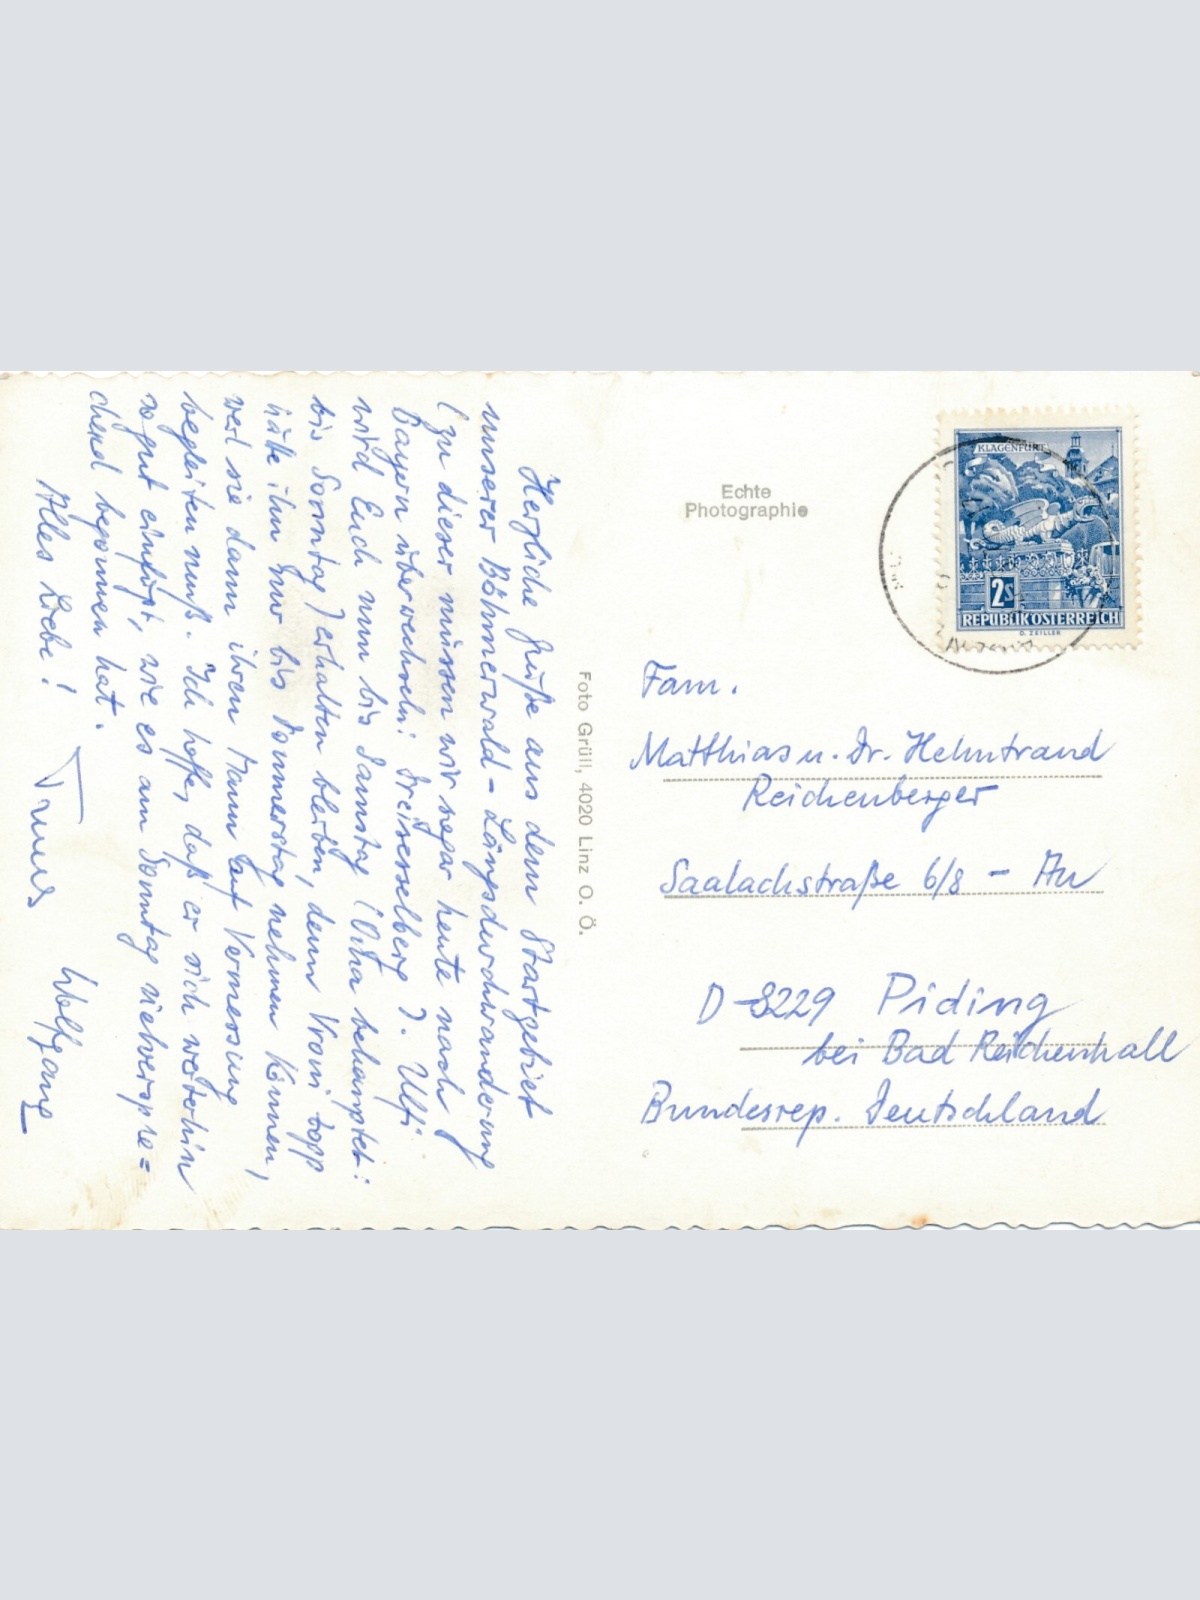 Herzliche Grüße aus dem Startgebiet
unserer Böhmerwald-Längsdurchwanderung
(zu dieser müssen wir sogar heute nach
Bayern überwechseln: Dreisesselberg). Ulfi
wird Euch nun bis Samstag (Otha behauptet:
bis Sonntag) erhalten bleiben, denn Vroni Bopp
hätte ihn nur bis Donnerstag nehmen können,
weil sie dann ihren Mann auf Vermessung
begleiten muß. Ich hoffe, daß er sich weiterhin
so gut einfügt, wie es am Sonntag vielverspre=
chend begonnen hat.
Alles Liebe!
Wolfgang
Foto Grüll, 4020 Linz O. Ö.
Echte
Photographie
KLAGENFURT
2S
REPUBLIK ÖSTERREICH
G. ZEILLER
Fam.
Matthias u. Dr. Helmtrand
Reichenberger
Saalachstraße 6/8 - Au
D-8229 Piding
bei Bad Reichenhall
Bundesrep. Deutschland